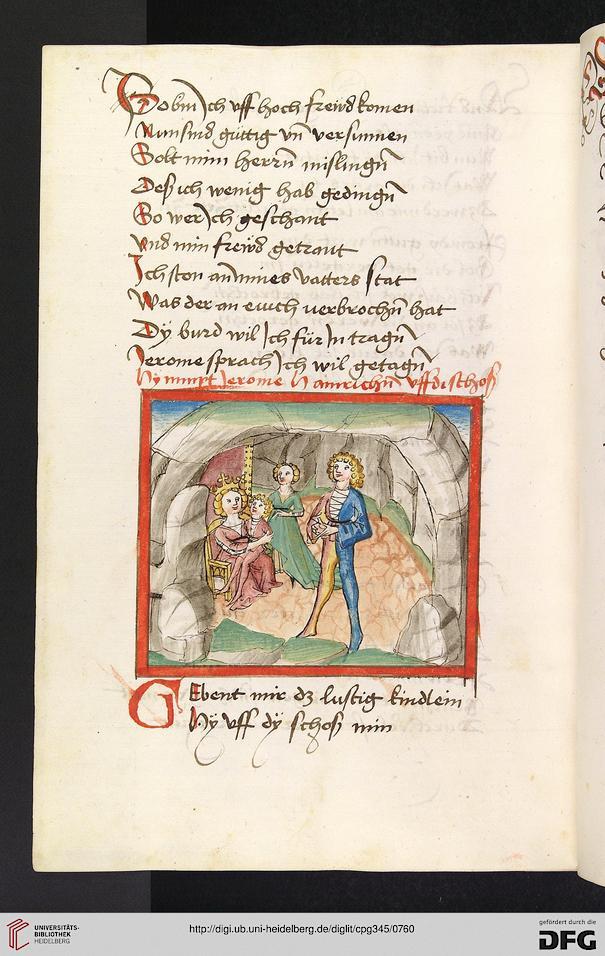 So bin Jch vff hoch freẅd komen
Nun sind güttig vn̄ versunnen
Solt mim herrn̄ mislingn̄
Deß ich wenig hab gedingn̄
So wer Jch geschant
vnd min freẅd getrant
Jch ston an mines vatters stat
Was der an euch verbrochn̄ hat
Dy burd wil Jch für Jn tragn̄
Jerome sprach Jch wil getagn̄
Hy nimpt Jerome Hainrichn̄ vff di schoß
GEbent mir dz lustig kindlein
Hÿ vff dÿ schoß min
UNIVERSITÄTS-
BIBLIOTHEK
HEIDELBERG
http://digi.ub.uni-heidelberg.de/diglit/cpg345/0760
gefördert durch die
DFG